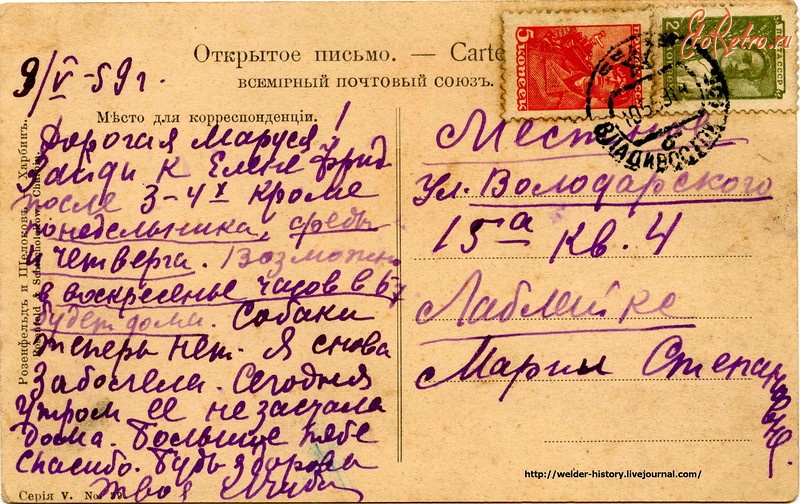 9/V-59 г.
Открытое письмо. — Carte
ВСЕМІРНЫЙ ПОЧТОВЫЙ СОЮЗЪ.
Мѣсто для корреспонденціи.
Дорогая Маруся!
Зайди к Елене Фрид
после 3-4х кроме
понедельника, среды
и четверга. Возможно
в воскресенье часов в 6-7
будет дома. Собаки
теперь нет. Я снова
заболела. Сегодня
утром ее не застала
дома. Большое тебе
спасибо. Будь здорова
Твоя
Серія V. No.
Розенфельдъ и Щелоковъ, Харбинъ.
5 КОПЕЕК
2
ВЛАДИВОСТОК
GoRetro.ru
Местное
Ул. Володарского
15а кв. 4
Лаблейке
Марии Степановне
http://welder-history.livejournal.com/